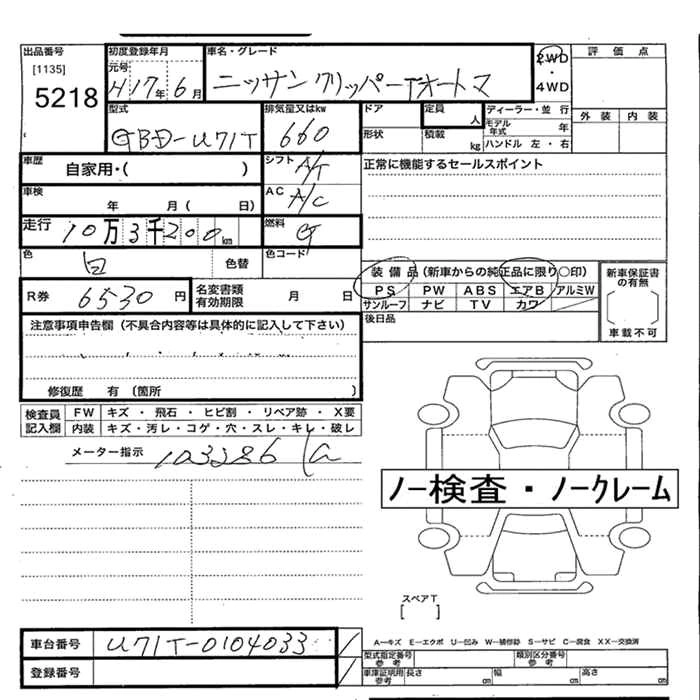 出品番号 初度登録年月 車名・グレード 評価点
[1135] 元号 2WD
5218 H17年6月 ニッサン クリッパー Tオートマ ・
4WD
型式 排気量又はkw ドア 定員 人 ディーラー・並行 外装 内装
GBD-U71T 660 形状 積載 kg モデル年式 年
ハンドル 左・右
車歴 自家用・( ) シフト A/T 正常に機能するセールスポイント
車検 年 月( 日) AC A/C
走行 10万3千200km 燃料 G
色 白 色替 色コード
装備品(新車からの純正品に限り○印) 新車保証書の有無
R券 6530円 名変書類有効期限 月 日 PS PW ABS エアB アルミW
サンルーフ ナビ TV カワ
注意事項申告欄(不具合内容等は具体的に記入して下さい) 後日品 車載不可
修復歴 有(箇所 )
検査員記入欄 FW キズ・飛石・ヒビ割・リペア跡・X要
内装 キズ・汚レ・コゲ・穴・スレ・キレ・破レ
メーター指示 103286
ノー検査・ノークレーム
スペアT
[ ]
車台番号 U71T-0104033
A—キズ E—エクボ U—凹み W—補修跡 S—サビ C—腐食 XX—交換済
型式指定番号 参考 類別区分番号 参考
登録番号 車庫証明用 参考 長さ cm 幅 cm 高さ cm